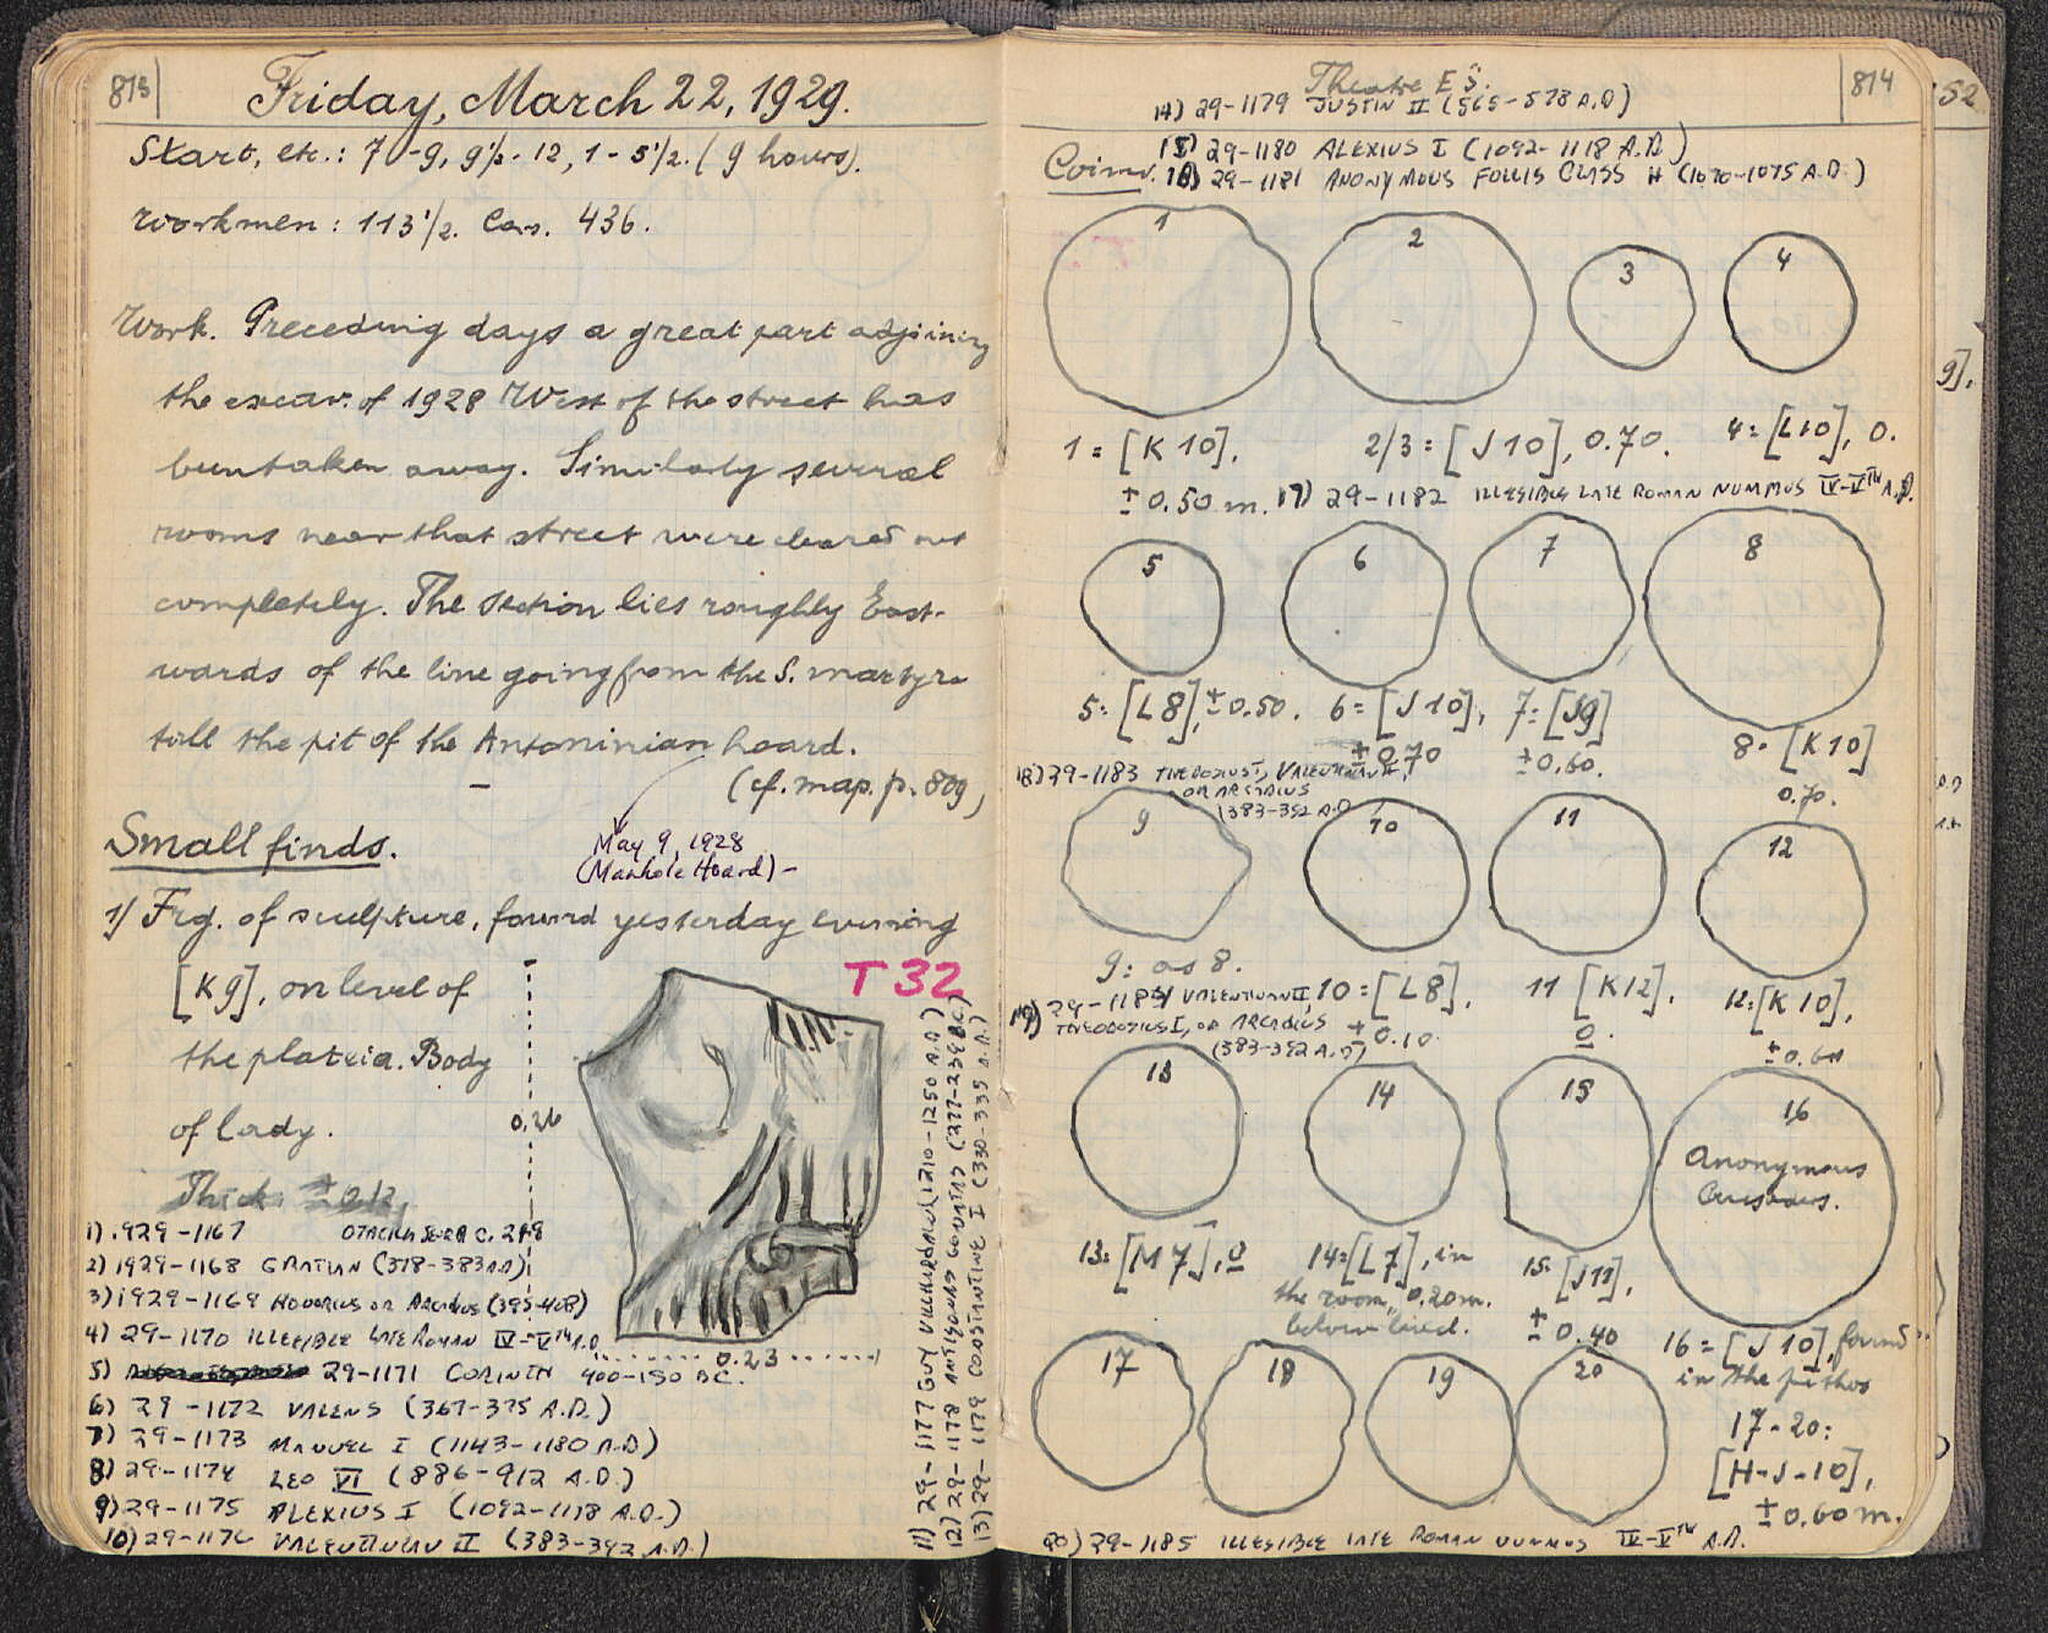 813
Friday, March 22, 1929.
Start, etc.: 7-9, 9½-12, 1-5½. (9 hours).
Workmen: 113½. Cars. 436.
Work. Preceding days a great part adjoining
the excav. of 1928 West of the street has
been taken away. Similarly several
rooms near that street were cleared out
completely. The section lies roughly East-
wards of the line going from the S. martyro
till the pit of the Antoninian hoard.
(cf. map. p. 809)
May 9, 1928
(Manhole Hoard) -
Small finds.
1/ Frg. of sculpture, found yesterday evening
[K9], on level of
the plateia. Body
of lady.
Thick. ± 0.12,
T 32
0.26
0.23
1) .929-1167 OTACILIA SEVERA C. 248
2) 1929-1168 GRATIAN (378-383 A.D)
3) 1929-1169 HONORIUS OR ARCADIUS (395-408)
4) 29-1170 ILLEGIBLE LATE ROMAN IV-VTH A.D
5) 29-1171 CORINTH 400-150 BC.
6) 29-1172 VALENS (367-375 A.D.)
7) 29-1173 MANUEL I (1143-1180 A.D)
8) 29-1174 LEO VI (886-912 A.D.)
9) 29-1175 ALEXIUS I (1092-1118 A.D.)
10) 29-1176 VALENTINIAN II (383-392 A.D.)
11) 29-1177 GUY VILLEHARDAROU (1210-1250 A.D)
12) 29-1178 ANTIGONAS GONATAS (277-239 B.C.)
13) 29-1179 CONSTANTINE I (330-335 A.D.)
Theatre E S.
814
14) 29-1179 JUSTIN II (565-578 A.D)
15) 29-1180 ALEXIUS I (1092-1118 A.D)
Coins. 16) 29-1181 ANONYMOUS FOLLIS CLASS H (1070-1075 A.D.)
1
2
3
4
1 = [K 10].
± 0.50 m.
2/3 = [J 10], 0.70.
4 = [L10], 0.
17) 29-1182 ILLEGIBLE LATE ROMAN NUMMUS IV-VTH A.D.
5
6
7
8
5: [L8], ± 0.50.
6 = [J 10],
± 0.70
7: [J9]
± 0.60.
8. [K10]
0.70.
18) 29-1183 THEODOSIUS I, VALENTINIAN II,
OR ARCADIUS
(383-392 A.D)
9
10
11
12
9: as 8.
10 = [L8].
± 0.10
11 [K12].
0.
12: [K 10],
± 0.60
19) 29-1184 VALENTINIAN II,
THEODOSIUS I, OR ARCADIUS
(383-392 A.D)
13
14
15
16
Anonymous
Crusaders.
13: [M7], 0
14: [L7], in
the room, 0.20m.
below lived.
15: [J11],
± 0.40
16 = [J 10], found
in the pithos
17
18
19
20
17-20:
[H-J-10],
± 0.60 m.
20) 29-1185 ILLEGIBLE LATE ROMAN NUMMUS IV-VTH A.D.
52
9],